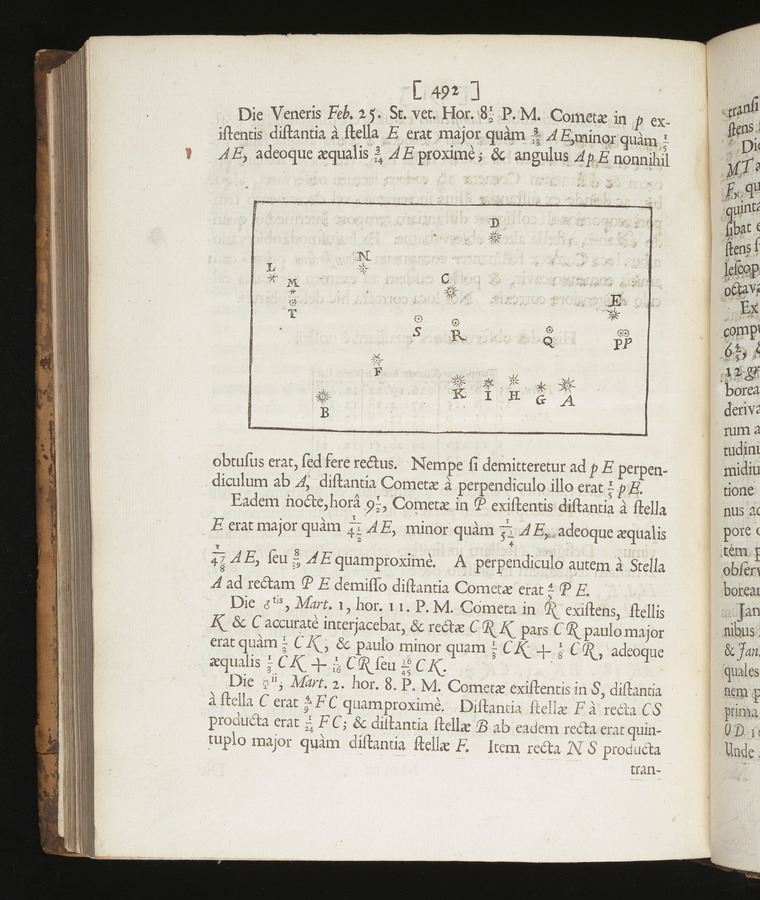 [ 492 ]
Die Veneris Feb. 25. St. vet. Hor. 8½ P. M. Cometæ in p ex-
iſtentis diſtantia à ſtella E erat major quàm 3/13 AE, minor quàm 1/5
AE, adeoque æqualis 3/14 AE proximè; & angulus ApE nonnihil
D
N
L
M
C
T
E
S
R
Q
pP
F
K
I
H
G
A
B
obtuſus erat, ſed fere rectus. Nempe ſi demitteretur ad p E perpen-
diculum ab A, diſtantia Cometæ à perpendiculo illo erat 1/5 pE.
Eadem nocte, horâ 9½, Cometæ in P exiſtentis diſtantia à ſtella
E erat major quàm 1/4½ AE, minor quàm 1/5¼ AE, adeoque æqualis
1/4⅞ AE, ſeu 8/39 AE quamproximè. A perpendiculo autem à Stella
A ad rectam P E demiſſo diſtantia Cometæ erat 4/5 P E.
Die ♂tis, Mart. 1, hor. 11. P. M. Cometa in R exiſtens, ſtellis
K & C accuratè interjacebat, & rectæ C R K pars C R paulo major
erat quàm 1/3 C K, & paulo minor quam 1/3 C K + 1/8 C R, adeoque
æqualis 1/3 C K + 1/16 C R ſeu 16/45 C K.
Die ☿ii, Mart. 2. hor. 8. P. M. Cometæ exiſtentis in S, diſtantia
à ſtella C erat 4/9 F C quamproximè. Diſtantia ſtellæ F à recta C S
producta erat 1/24 F C; & diſtantia ſtellæ B ab eadem recta erat quin-
tuplo major quàm diſtantia ſtellæ F. Item recta N S producta
tran-